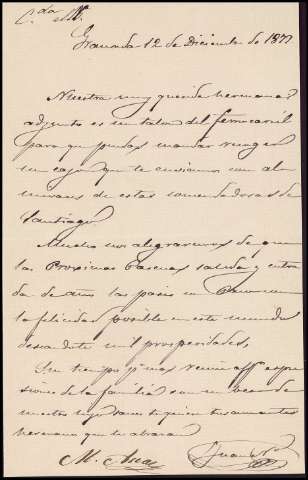 Granada 12 de Diciembre de 1877
Nuestra muy querida hermana
adjunto es un talon del ferrocarril
para que puedas mandar recoger
un cajon que te enviamos con al
de estas comendadoras de
Santiago
Mucho nos alegraremos de que
las Proximas Pascuas salida y entra
da de años las paseis en
la felicidad posible en este mundo
deseandote mil prosperidades.
Sin tiempo p.ª mas recibe aff.s espre
siones de la familia con un beso de
nuestro y sabes te quieren tus amantes
hermanos que te abrazan
M. Juan